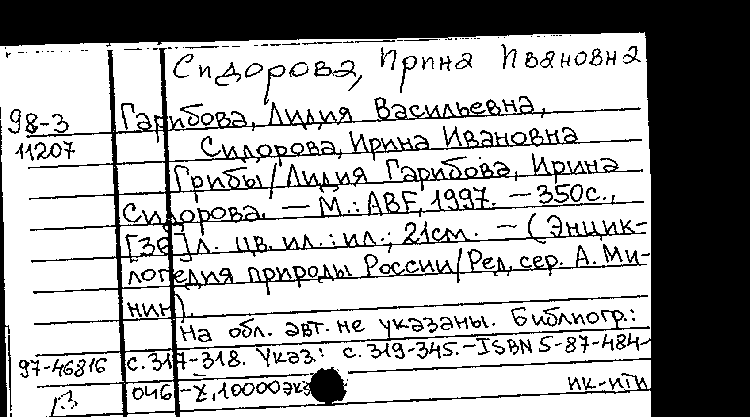 Сидорова, Ирина Ивановна
98-3 Гарибова, Лидия Васильевна,
11207 Сидорова, Ирина Ивановна
Грибы/Лидия Гарибова, Ирина
Сидорова. — М.: ABF, 1997. — 350с.,
[36]л. цв. ил.: ил.; 21см. — (Энцик-
лопедия природы России/Ред. сер. А. Ми-
нин).
На обл. авт. не указаны. Библиогр.:
97-46816 с. 317-318. Указ.: с. 319-345.-ISBN 5-87-484-
13 046-X, 10000экз